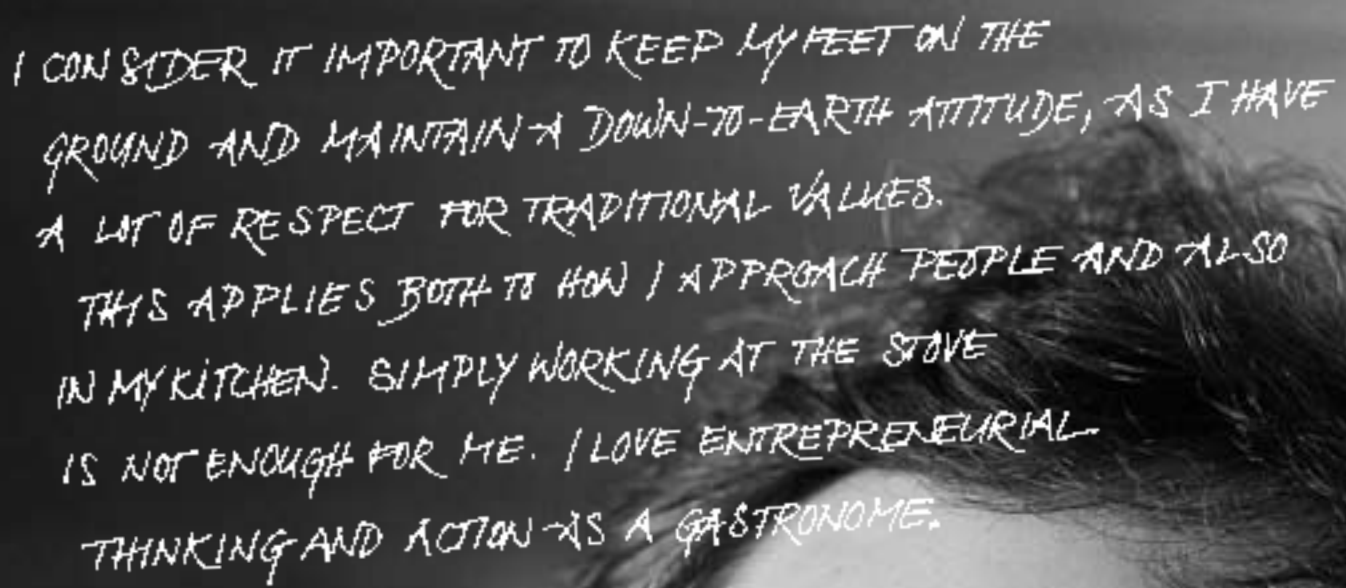 I CONSIDER IT IMPORTANT TO KEEP MY FEET ON THE
GROUND AND MAINTAIN A DOWN-TO-EARTH ATTITUDE, AS I HAVE
A LOT OF RESPECT FOR TRADITIONAL VALUES.
THIS APPLIES BOTH TO HOW I APPROACH PEOPLE AND ALSO
IN MY KITCHEN. SIMPLY WORKING AT THE STOVE
IS NOT ENOUGH FOR ME. I LOVE ENTREPRENEURIAL
THINKING AND ACTION AS A GASTRONOME.